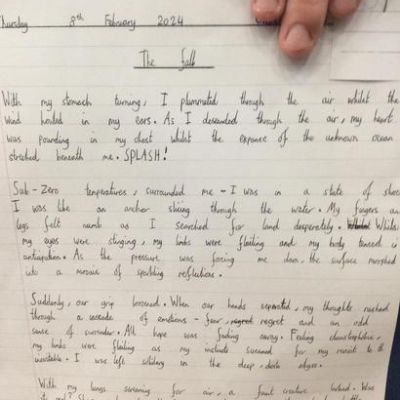 Thursday 8th February 2024
The Fall
With my stomach turning, I plummeted through the air whilst the
wind howled in my ears. As I descended through the air, my heart
was pounding in my chest whilst the expanse of the unknown ocean
stretched beneath me. SPLASH!
Sub-Zero temperatures, surrounded me - I was in a state of shock
I was like an anchor slicing through the water. My fingers and
legs felt numb as I searched for land desperately. Whilst
my eyes were stinging, my limbs were flailing and my body tensed in
anticipation. As the pressure was forcing me down, the surface morphed
into a mosaic of sparkling reflections.
Suddenly, our grip loosened. When our hands separated, my thoughts rushed
through a cascade of emotions - fear, regret and an odd
sense of surrender. All hope was fading away. Feeling claustrophobic,
my limbs were flailing as my screamed for my to
inevitable. I was left solitary in the deep, dark abyss.
With my lungs screaming for air, a faint creature Was